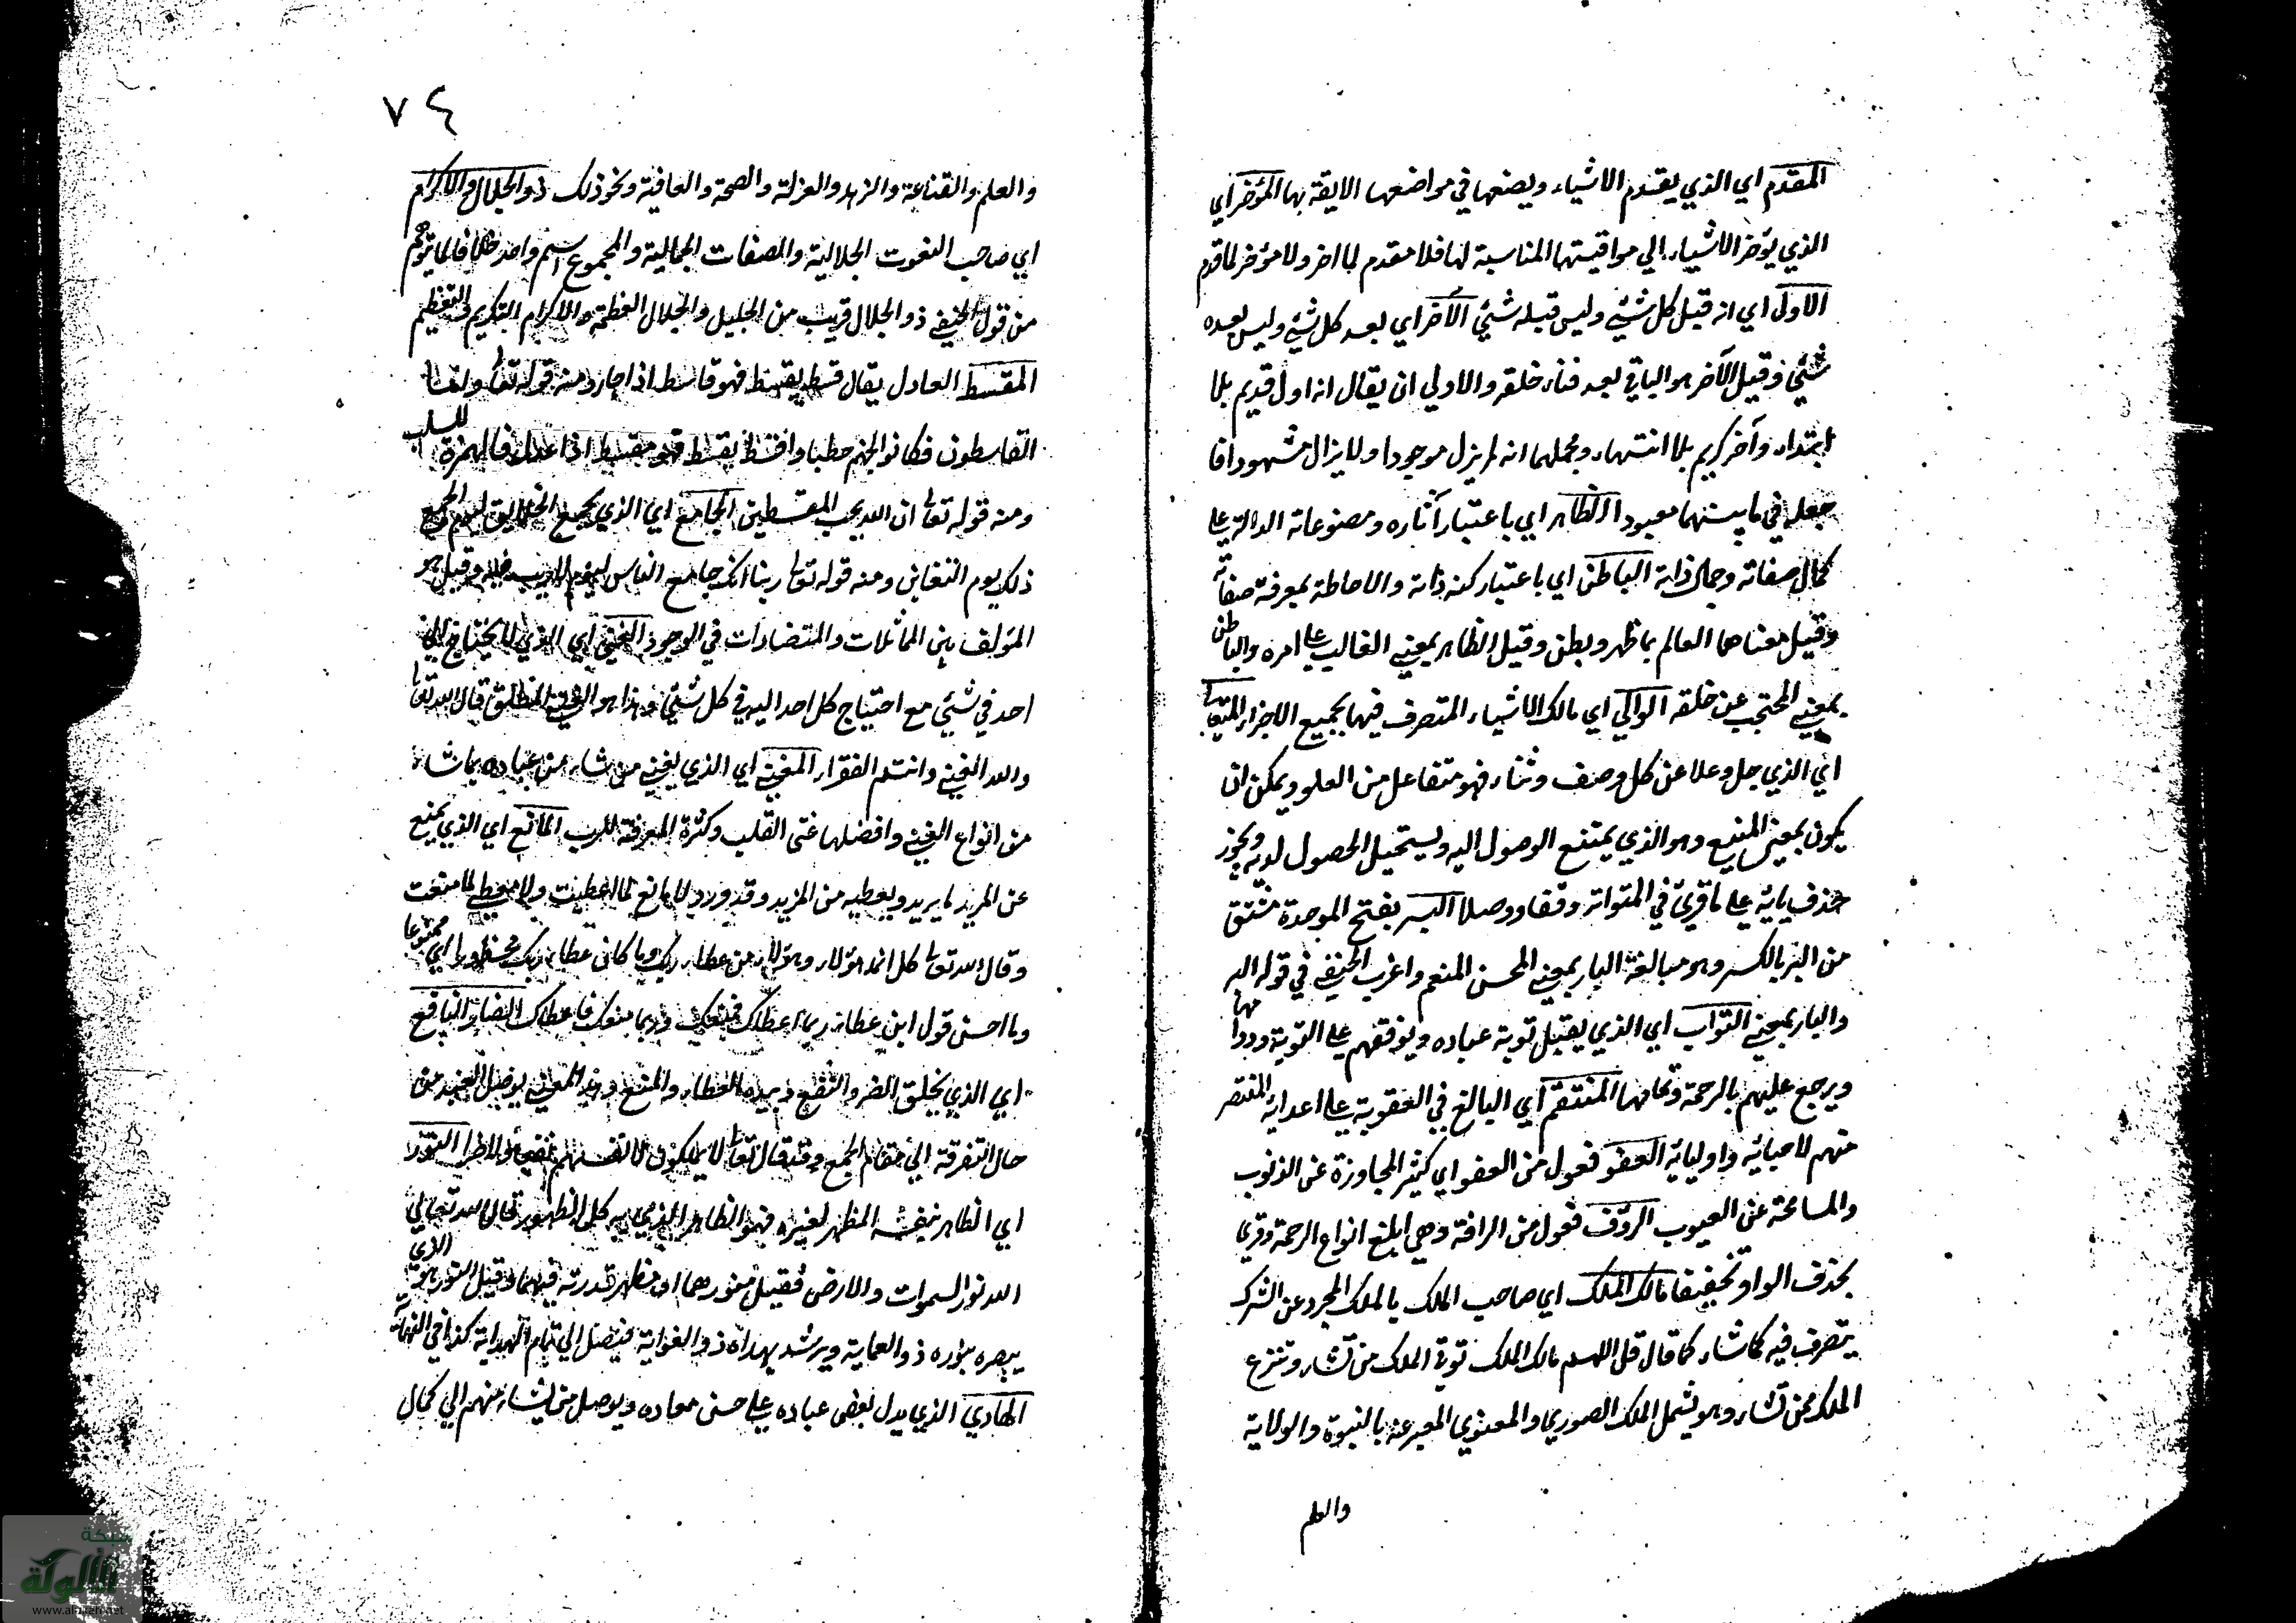 المقدم اي الذي يقدم الاشياء ويضعها في مواضعها الايقة بها المؤخر اي
الذي يؤخر الاشياء الي مواقيتها المناسبة لها فلا مقدم لما اخر ولا مؤخر لما قدم
الاول اي انه قبل كل شئ وليس قبله شئ الآخر اي بعد كل شئ وليس بعده
شئ وقيل الآخر هو الباقي بعد فناء خلقه والاولي ان يقال انه اول قديم بلا
ابتداء وآخر كريم بلا انتهاء ومجملها انه لم يزل موجودا ولا يزال مشهودا فا
جعله في ما بينهما معبودا الظاهر اي باعتبار آثاره ومصنوعاته الدالة علي
كمال صفاته وجمال ذاته الباطن اي باعتبار كنه ذاته والاحاطة بمعرفة صفاته
وقيل معناهما العالم بما ظهر وبطن وقيل الظاهر بمعني الغالب علي امره والباطن
بمعني المحتجب عن خلقه الوالي اي مالك الاشياء المتصرف فيها بجميع الاجزاء المتعالي
اي الذي جل وعلا عن كل وصف وثناء فهو متفاعل من العلو ويمكن ان
يكون بمعني المنيع وهو الذي يمتنع الوصول اليه ويستحيل الحصول لديه ويجوز
حذف يائه علي ما قرئ في المتواتر وقفا ووصلا البر بفتح الموحدة مشتق
من البر بالكسر وهو مبالغة البار بمعني المحسن المنعم واغرب الحنفي في قوله البر
والبار بمعني التواب اي الذي يقبل توبة عباده ويوفقهم علي التوبة ودوامها
ويرجع عليهم بالرحمة وتمامها المنتقم اي البالغ في العقوبة علي اعدائه المنتصر
منهم لاحبائه واوليائه العفو فعول من العفو اي كثير المجاوزة عن الذنوب
والمسامحة عن العيوب الرؤف فعول من الرافة وهي ابلغ انواع الرحمة وقرئ
بحذف الواو تخفيفا مالك الملك اي صاحب الملك يا لملك المجرد عن الشرك
يتصرف فيه كما شاء كما قال قل اللهم مالك الملك توتي الملك من تشاء وتنزع
الملك ممن تشاء وهو يشمل الملك الصوري والمعنوي المعبر عنه بالنبوة والولاية
والعلم
٧٤
والعلم والقناعة والزهد والعزلة والصحة والعافية ونحو ذلك ذو الجلال والاكرام
اي صاحب النعوت الجلالية والصفات الجمالية والمجموع اسم واحد خلافا لما يتوهم
من قول الحنفي ذو الجلال قريب من الجليل والجلال العظمة والاكرام التكريم التعظيم
المقسط العادل يقال قسط يقسط فهو قاسط اذا جار ومنه قوله تعالي واما
القاسطون فكانوا لجهنم حطبا واقسط يقسط فهو مقسط اذا عدل فالهمزة للسلب
ومنه قوله تعالي ان الله يحب المقسطين الجامع اي الذي يجمع الخلايق ليوم الجمع
ذلك يوم التغابن ومنه قوله تعالي ربنا انك جامع الناس ليوم لا ريب فيه وقيل هو
المؤلف بين المماثلات والمتضادات في الوجود الغني اي الذي لا يحتاج الي
احد في شئ مع احتياج كل احد اليه في كل شئ وهذا هو الغني المطلق قال الله تعالي
والله الغني وانتم الفقراء المغني اي الذي يغني من شاء من عباده بما شاء
من انواع الغني وافضلها غني القلب وكثرة المعرفة للرب المانع اي الذي يمنع
عن المريد ما يريد ويعطيه من المزيد وقد ورد لا مانع لما اعطيت ولا معطي لما منعت
وقال الله تعالي كلا نمد هؤلاء وهؤلاء من عطاء ربك وما كان عطاء ربك محظورا اي ممنوعا
وما احسن قول ابن عطاء ربما اعطاك فمنعك وربما منعك فاعطاك الضار النافع
اي الذي يخلق الضر والنفع وبيده العطاء والمنع وهذا المعني يوصل العبد من
حال التفرقة الي مقام الجمع وقد قال تعالي لا يملكون لانفسهم نفعا ولا ضرا النور
اي الظاهر بنفسه المظهر لغيره فهو الظاهر الذي به كل الظهور قال الله تعالي
الله نور السموات والارض فقيل منورهما او مظهر قدرته فيهما وقيل النور هو الذي
يبصره بنوره ذو العماية ويرشد بهداه ذو الغواية فيتصل الي تمام الهداية كذا في النهاية
الهادي الذي يدل بعض عباده علي حسن معاده ويوصل من يشاء منهم الي كمال
شبكة
الألوكة
www.alukah.net